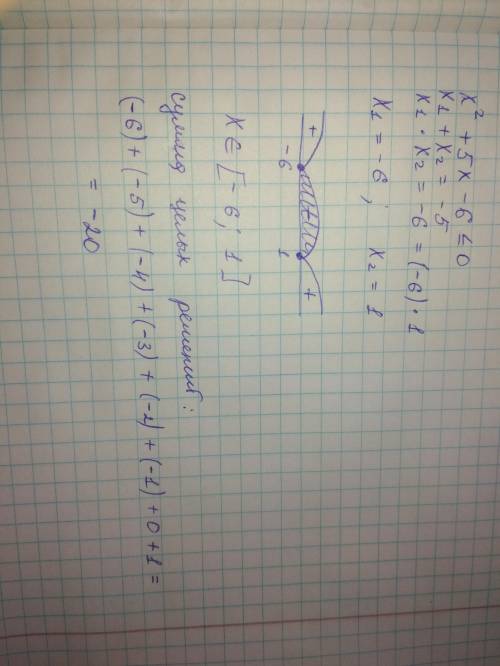 x² + 5x - 6 ≤ 0
x1 + x2 = -5
x1 · x2 = -6 = (-6) · 1
x1 = -6; x2 = 1
+ +
-6 1
x ∈ [-6; 1]
сумма целых решений:
(-6) + (-5) + (-4) + (-3) + (-2) + (-1) + 0 + 1 =
= -20